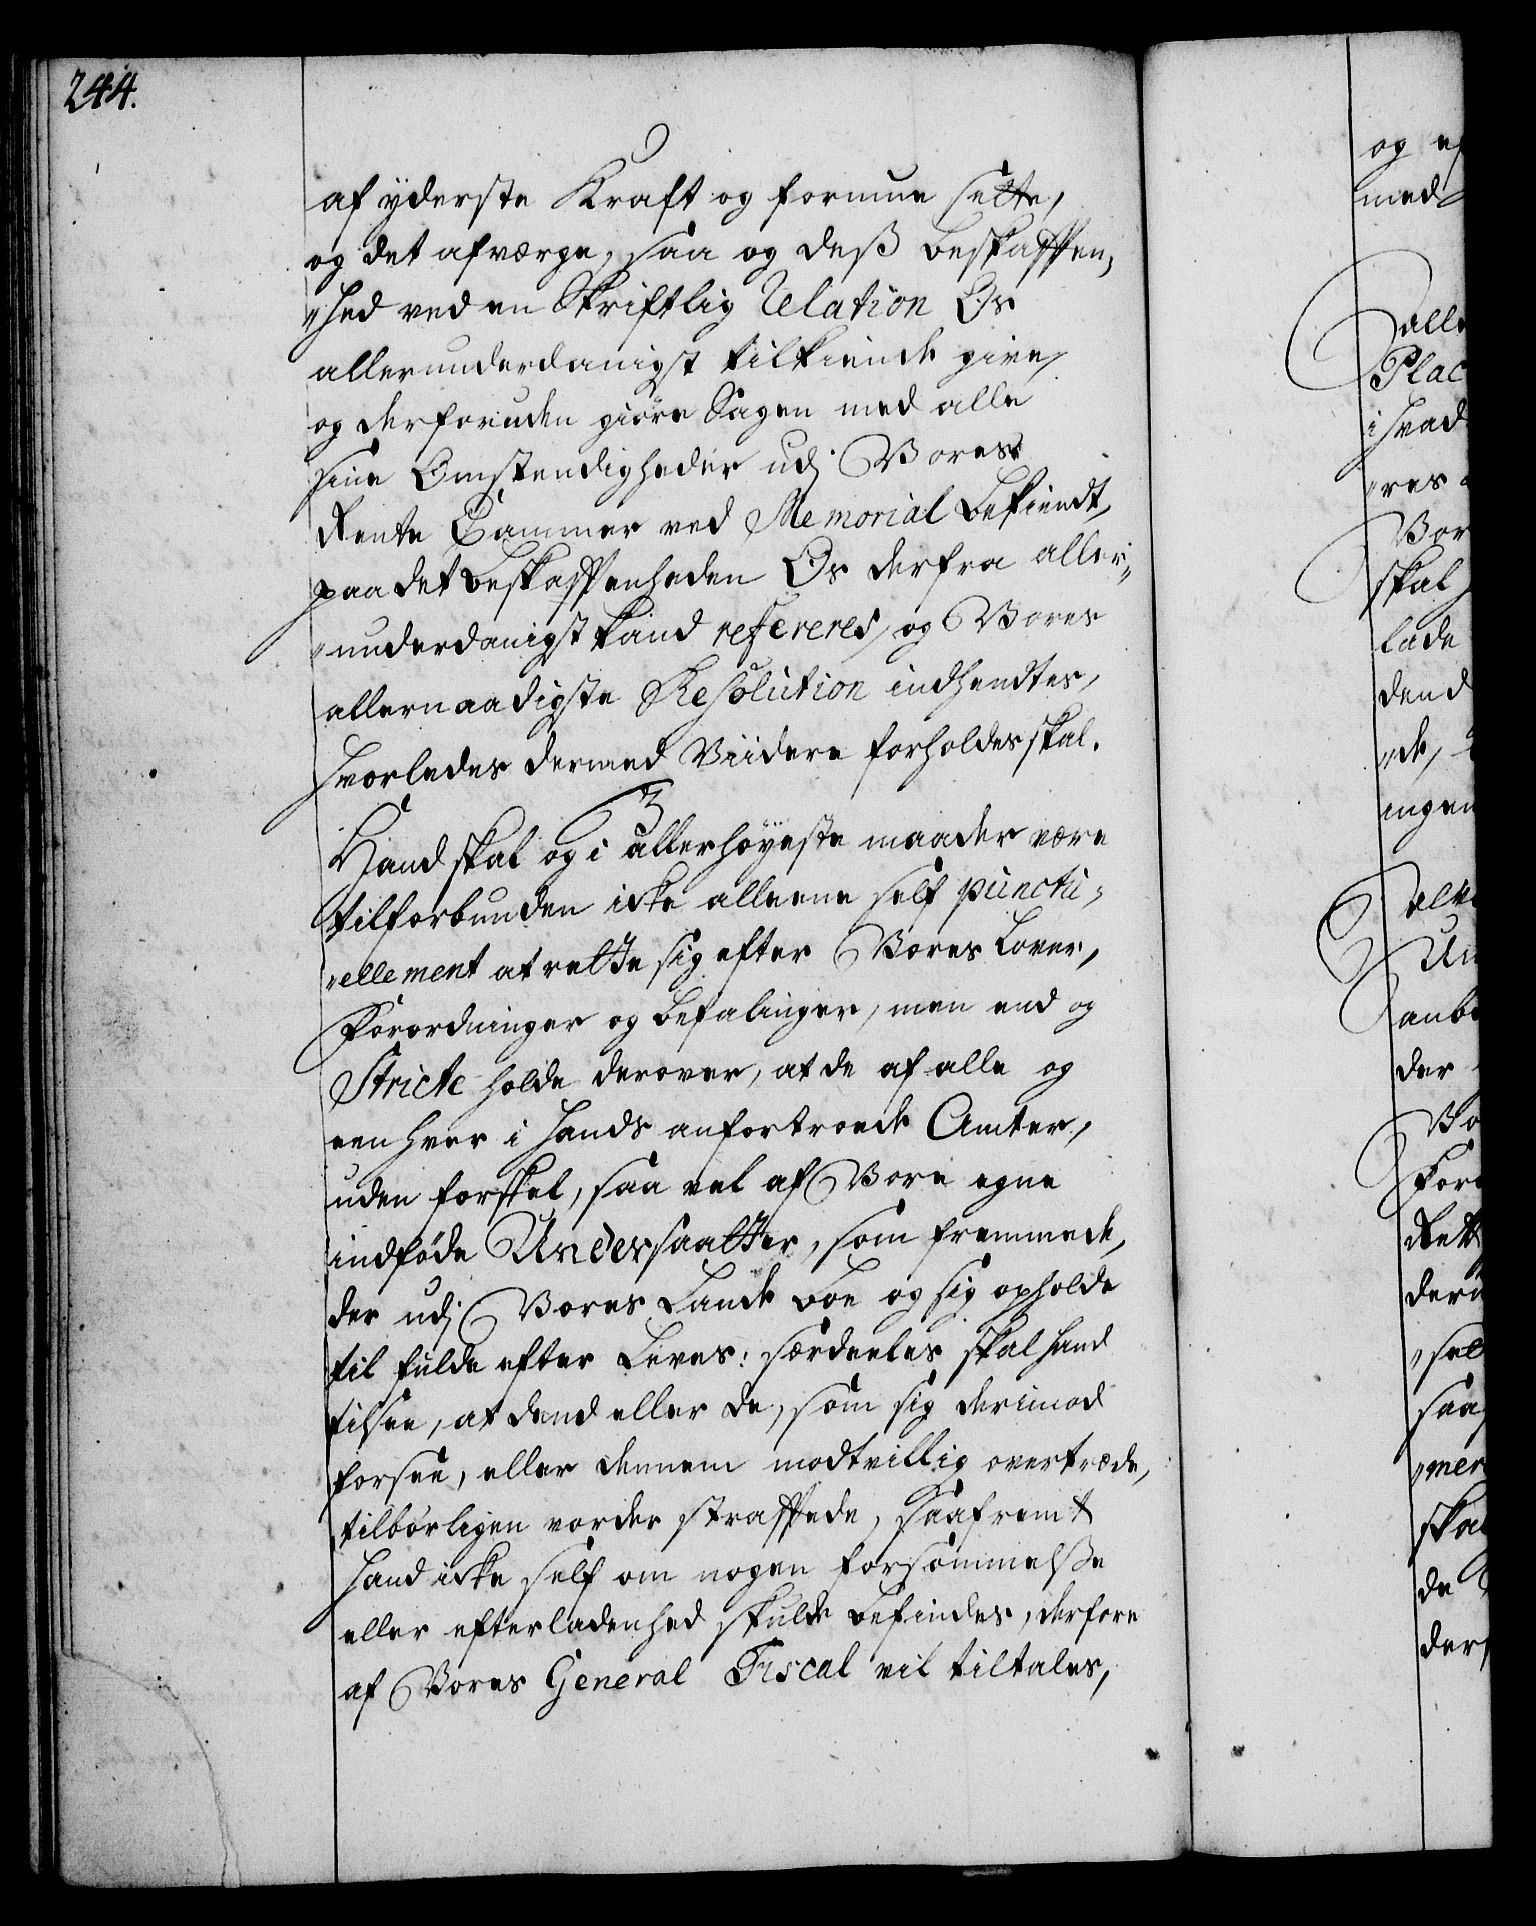 244.
af yderste Kraft og formue sætte,
og det afværge, saa og deß beskaffen,
"hed ved en Skriftlig Relation Os
allerunderdanigst tilkiende give,
og derforuden giøre Sagen med alle
sine Omstendigheder udj Vores
Rente Cammer ved Memorial bekiendt,
paa det beskaffenheden Os derfra aller,,
"underdanigst kand refereres, og Vores
allernaadigste Resolution indhendtes,
hvorledes dermed Viidere forholdes skal.
3
Hand skal og i allerhøyeste maader være
tilforbunden icke alleene self punctu,,
"ellement at rette sig efter Vores Lover,
Forordninger og befalinger, men end og
Stricte holde derover, at de af alle og
een hver i hands anfortroede Amter,
uden forskel, saa vel af Vore egne
indføde Undersaatter, som fremmede,
der udj Vores Lande boe og sig opholde
til fulde efter Leves: særdeeles skal hand
tilsee, at dend eller de, som sig derimod
forsee, eller dennem modtvillig overtræde,
tilbørligen vorder straffede, saafremt
hand icke self om nogen forsømmelße
eller efterladenhed skulde befindes, derfore
af Vores General Fiscal vil tiltales,
og
med
alle
Plac
i hvad
"res
Vor
skal
lade
dend
"de,
ingen
anbe
der
Vo
Foro
Rett
der
"sel
saa
"mer
skal
de
der